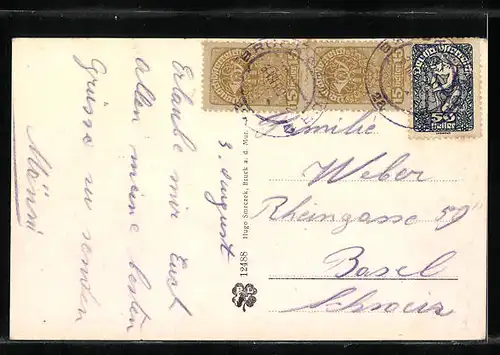 3. August
Erlaube mir Euch
allen meine besten
Grüsse zu senden
Familie
Weber
Rheingasse 59
Basel
Schweiz
12488 Hugo Smrczek, Bruck a. d. Mur.
BRUCK
15 15
15 15
Deutschösterreich
50
Heller